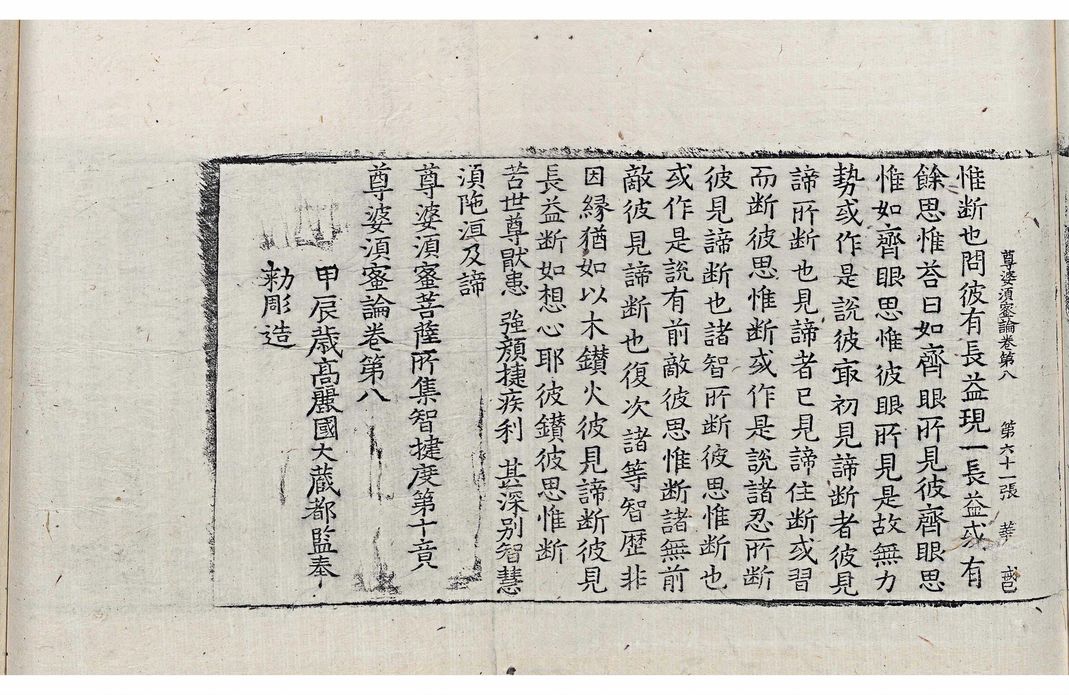 尊婆湏蜜論卷第八 第六十一張 華 邑
惟断也問彼有長益現一長益或有
餘思惟荅曰如齊眼所見彼齊眼思
惟如齊眼思惟彼眼所見是故無力
㔟或作是說彼㝡初見諦断者彼見
諦所断也見諦者已見諦住断或習
而断彼思惟断或作是說諸忍所断
彼見諦断也諸智所断彼思惟断也
或作是說有前敵彼思惟断諸無前
敵彼見諦断也復次諸等智歷非
因縁猶如以木鑚火彼見諦断彼見
長益断如想心耶彼鑚彼思惟断
苦世尊猒患 強顔捷疾利 甚深别智慧
湏陁洹及諦
尊婆湏蜜菩薩所集智揵度第十竟
尊婆湏蜜論卷第八
甲辰歲高麗國大藏都監奉
勑彫造